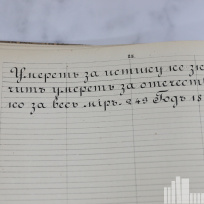 22
Умереть за истину не зн
чить умереть за отечест
но за весь мiръ. 249 Годъ 18